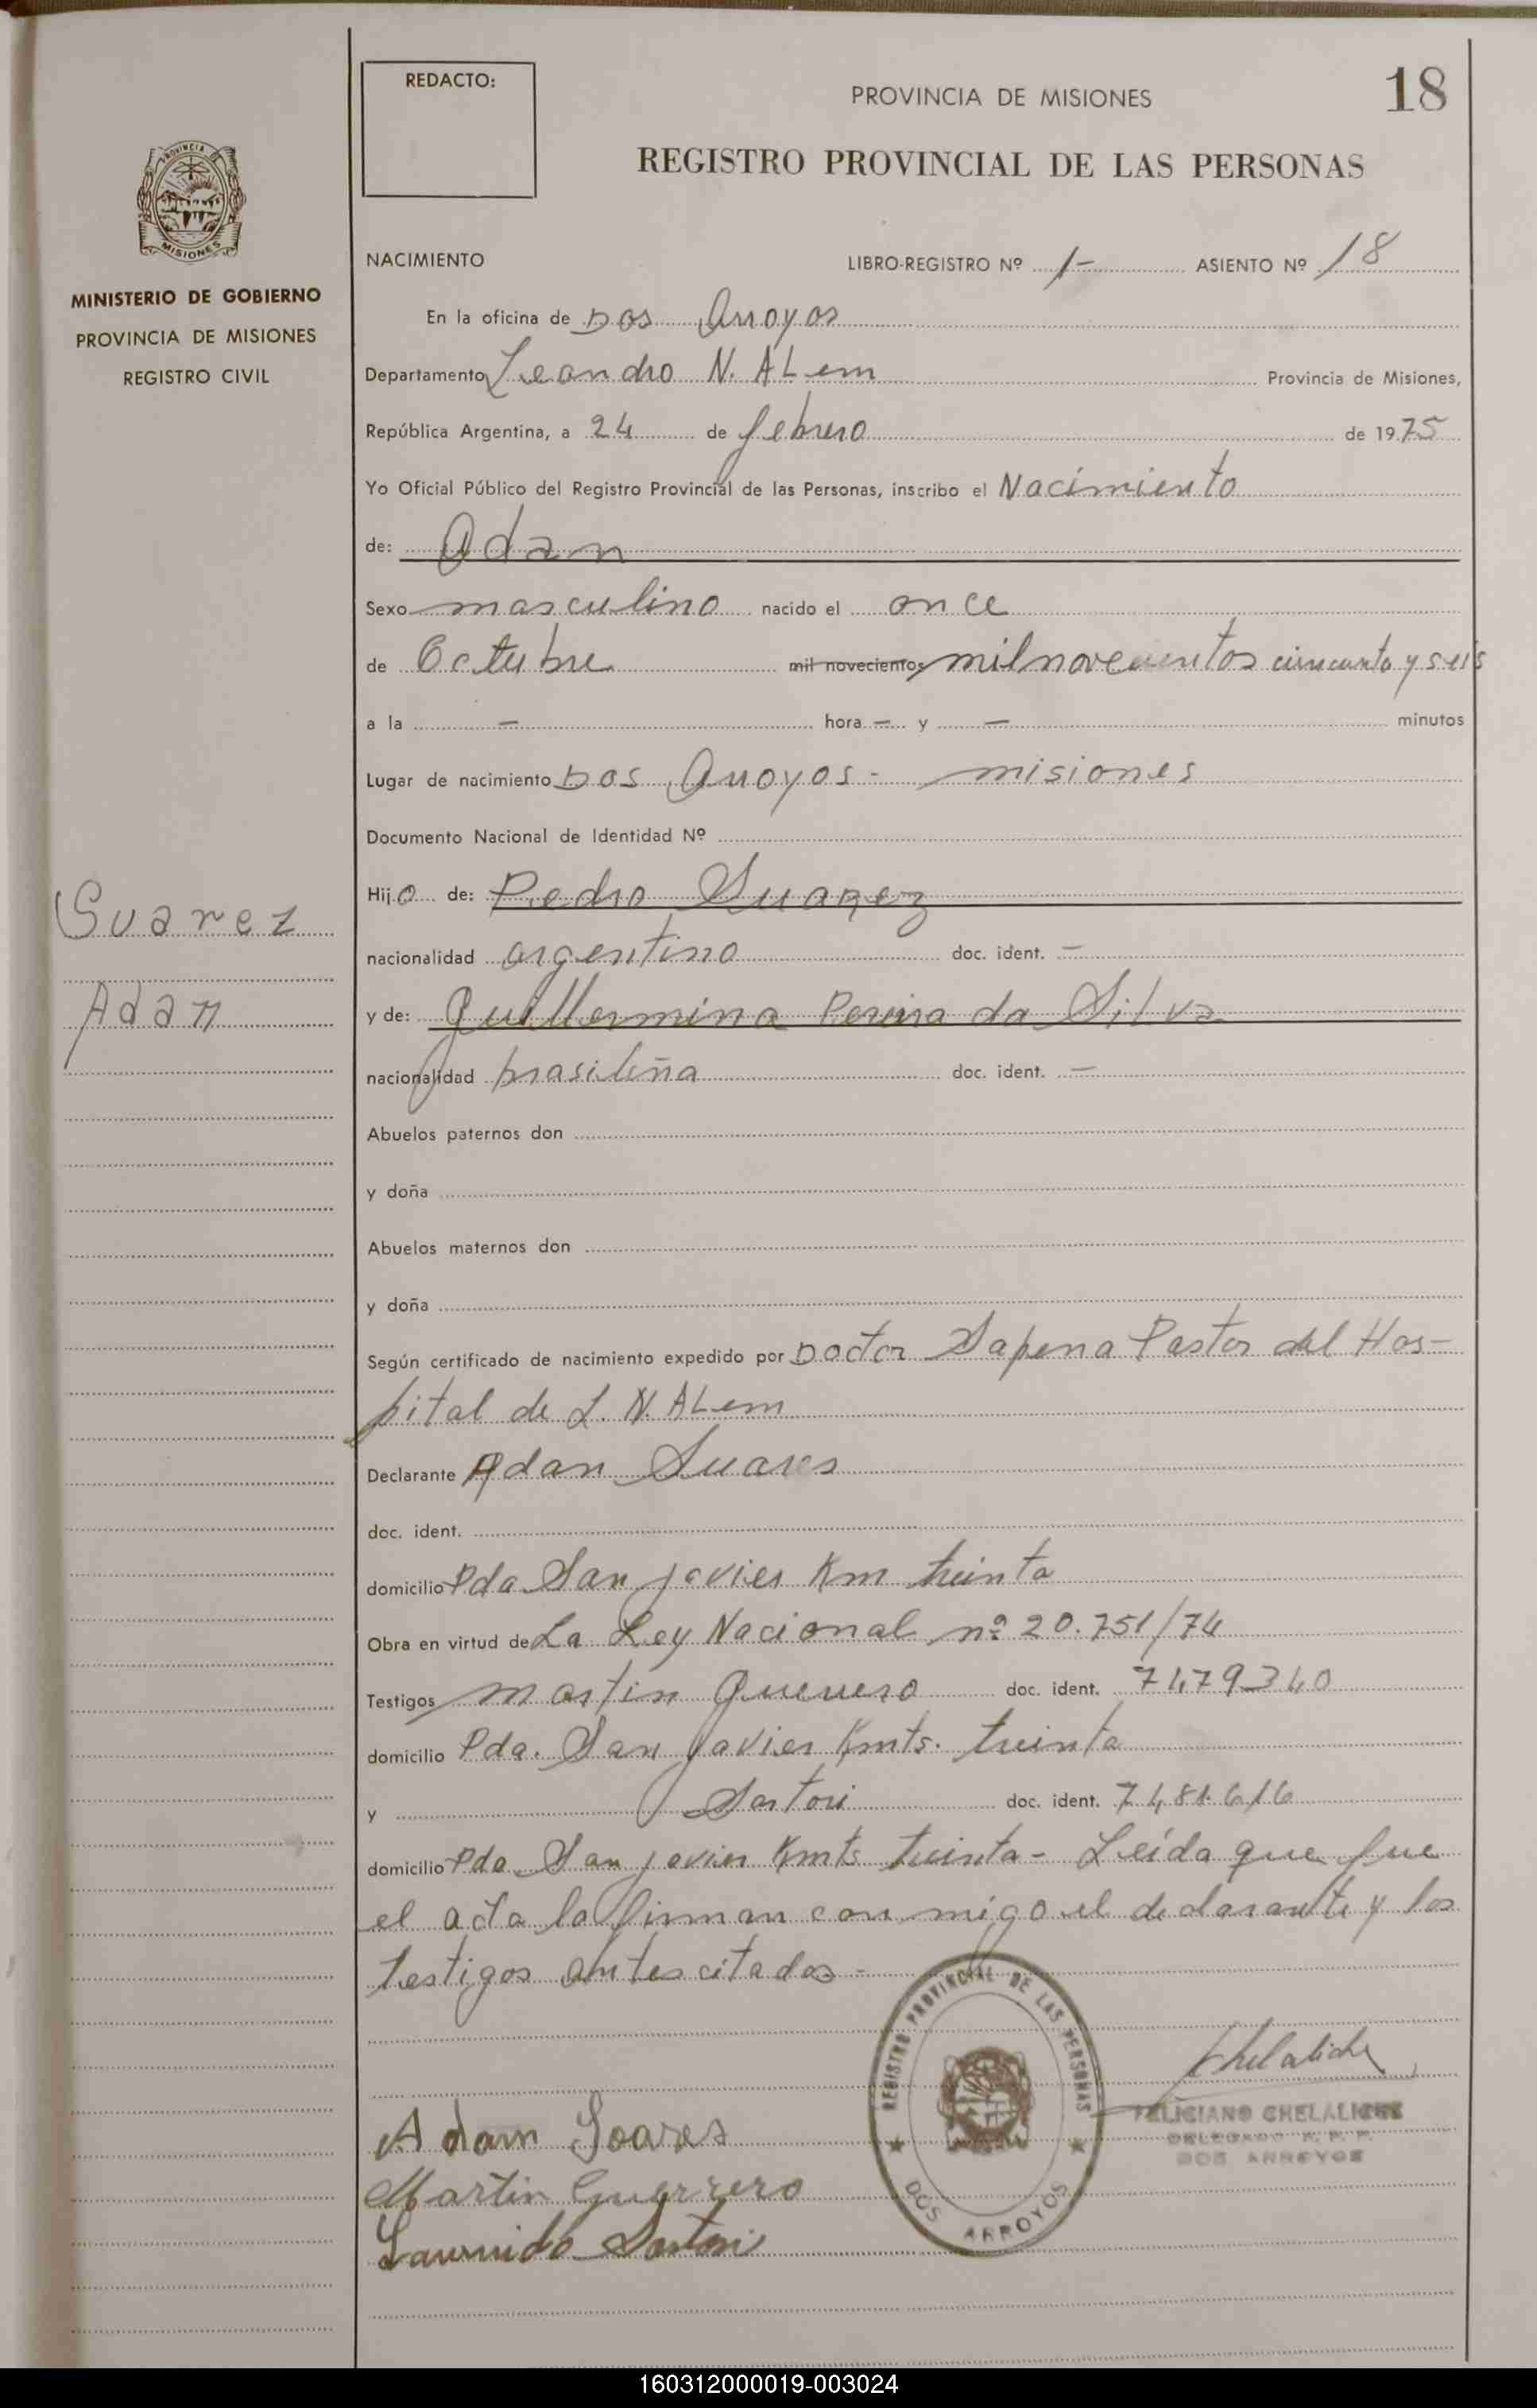 REDACTO:
PROVINCIA DE MISIONES
18
REGISTRO PROVINCIAL DE LAS PERSONAS
PROVINCIA DE
MISIONES
MINISTERIO DE GOBIERNO
PROVINCIA DE MISIONES
REGISTRO CIVIL
NACIMIENTO LIBRO-REGISTRO Nº 1- ASIENTO Nº 18
En la oficina de Dos Arroyos
Departamento Leandro N. ALem Provincia de Misiones,
República Argentina, a 24 de febrero de 1975
Yo Oficial Público del Registro Provincial de las Personas, inscribo el Nacimiento
de: Adan
Sexo masculino nacido el once
de Octubre mil novecientos mil novecientos cincuenta y seis
a la — hora — y — minutos
Lugar de nacimiento Dos Arroyos - misiones
Documento Nacional de Identidad Nº
Hijo de: Pedro Suarez
Suarez
nacionalidad argentino doc. ident. —
Adan
y de: Guillermina Pereira da Silva
nacionalidad brasileña doc. ident. —
Abuelos paternos don
y doña
Abuelos maternos don
y doña
Según certificado de nacimiento expedido por Doctor Sapena Pastor del Hos-
pital de L. N. ALem
Declarante Adan Suares
doc. ident.
domicilio Pda San Javier Km treinta
Obra en virtud de La Ley Nacional nº 20.751/74
Testigos Martin Guerrero doc. ident. 7479340
domicilio Pda. San Javier Kmts. treinta
y Sartori doc. ident. 7.481.616
domicilio Pda. San Javier Kmts treinta - Leída que fue
el acta la firman conmigo el declarante y los
testigos antes citados -
REGISTRO PROVINCIAL DE LAS PERSONAS
DOS ARROYOS
Chelaliche
FELICIANO CHELALICHE
DELEGADO R. P. P.
DOS ARROYOS
Adam Soares
Martin Guerrero
Sartori
160312000019-003024